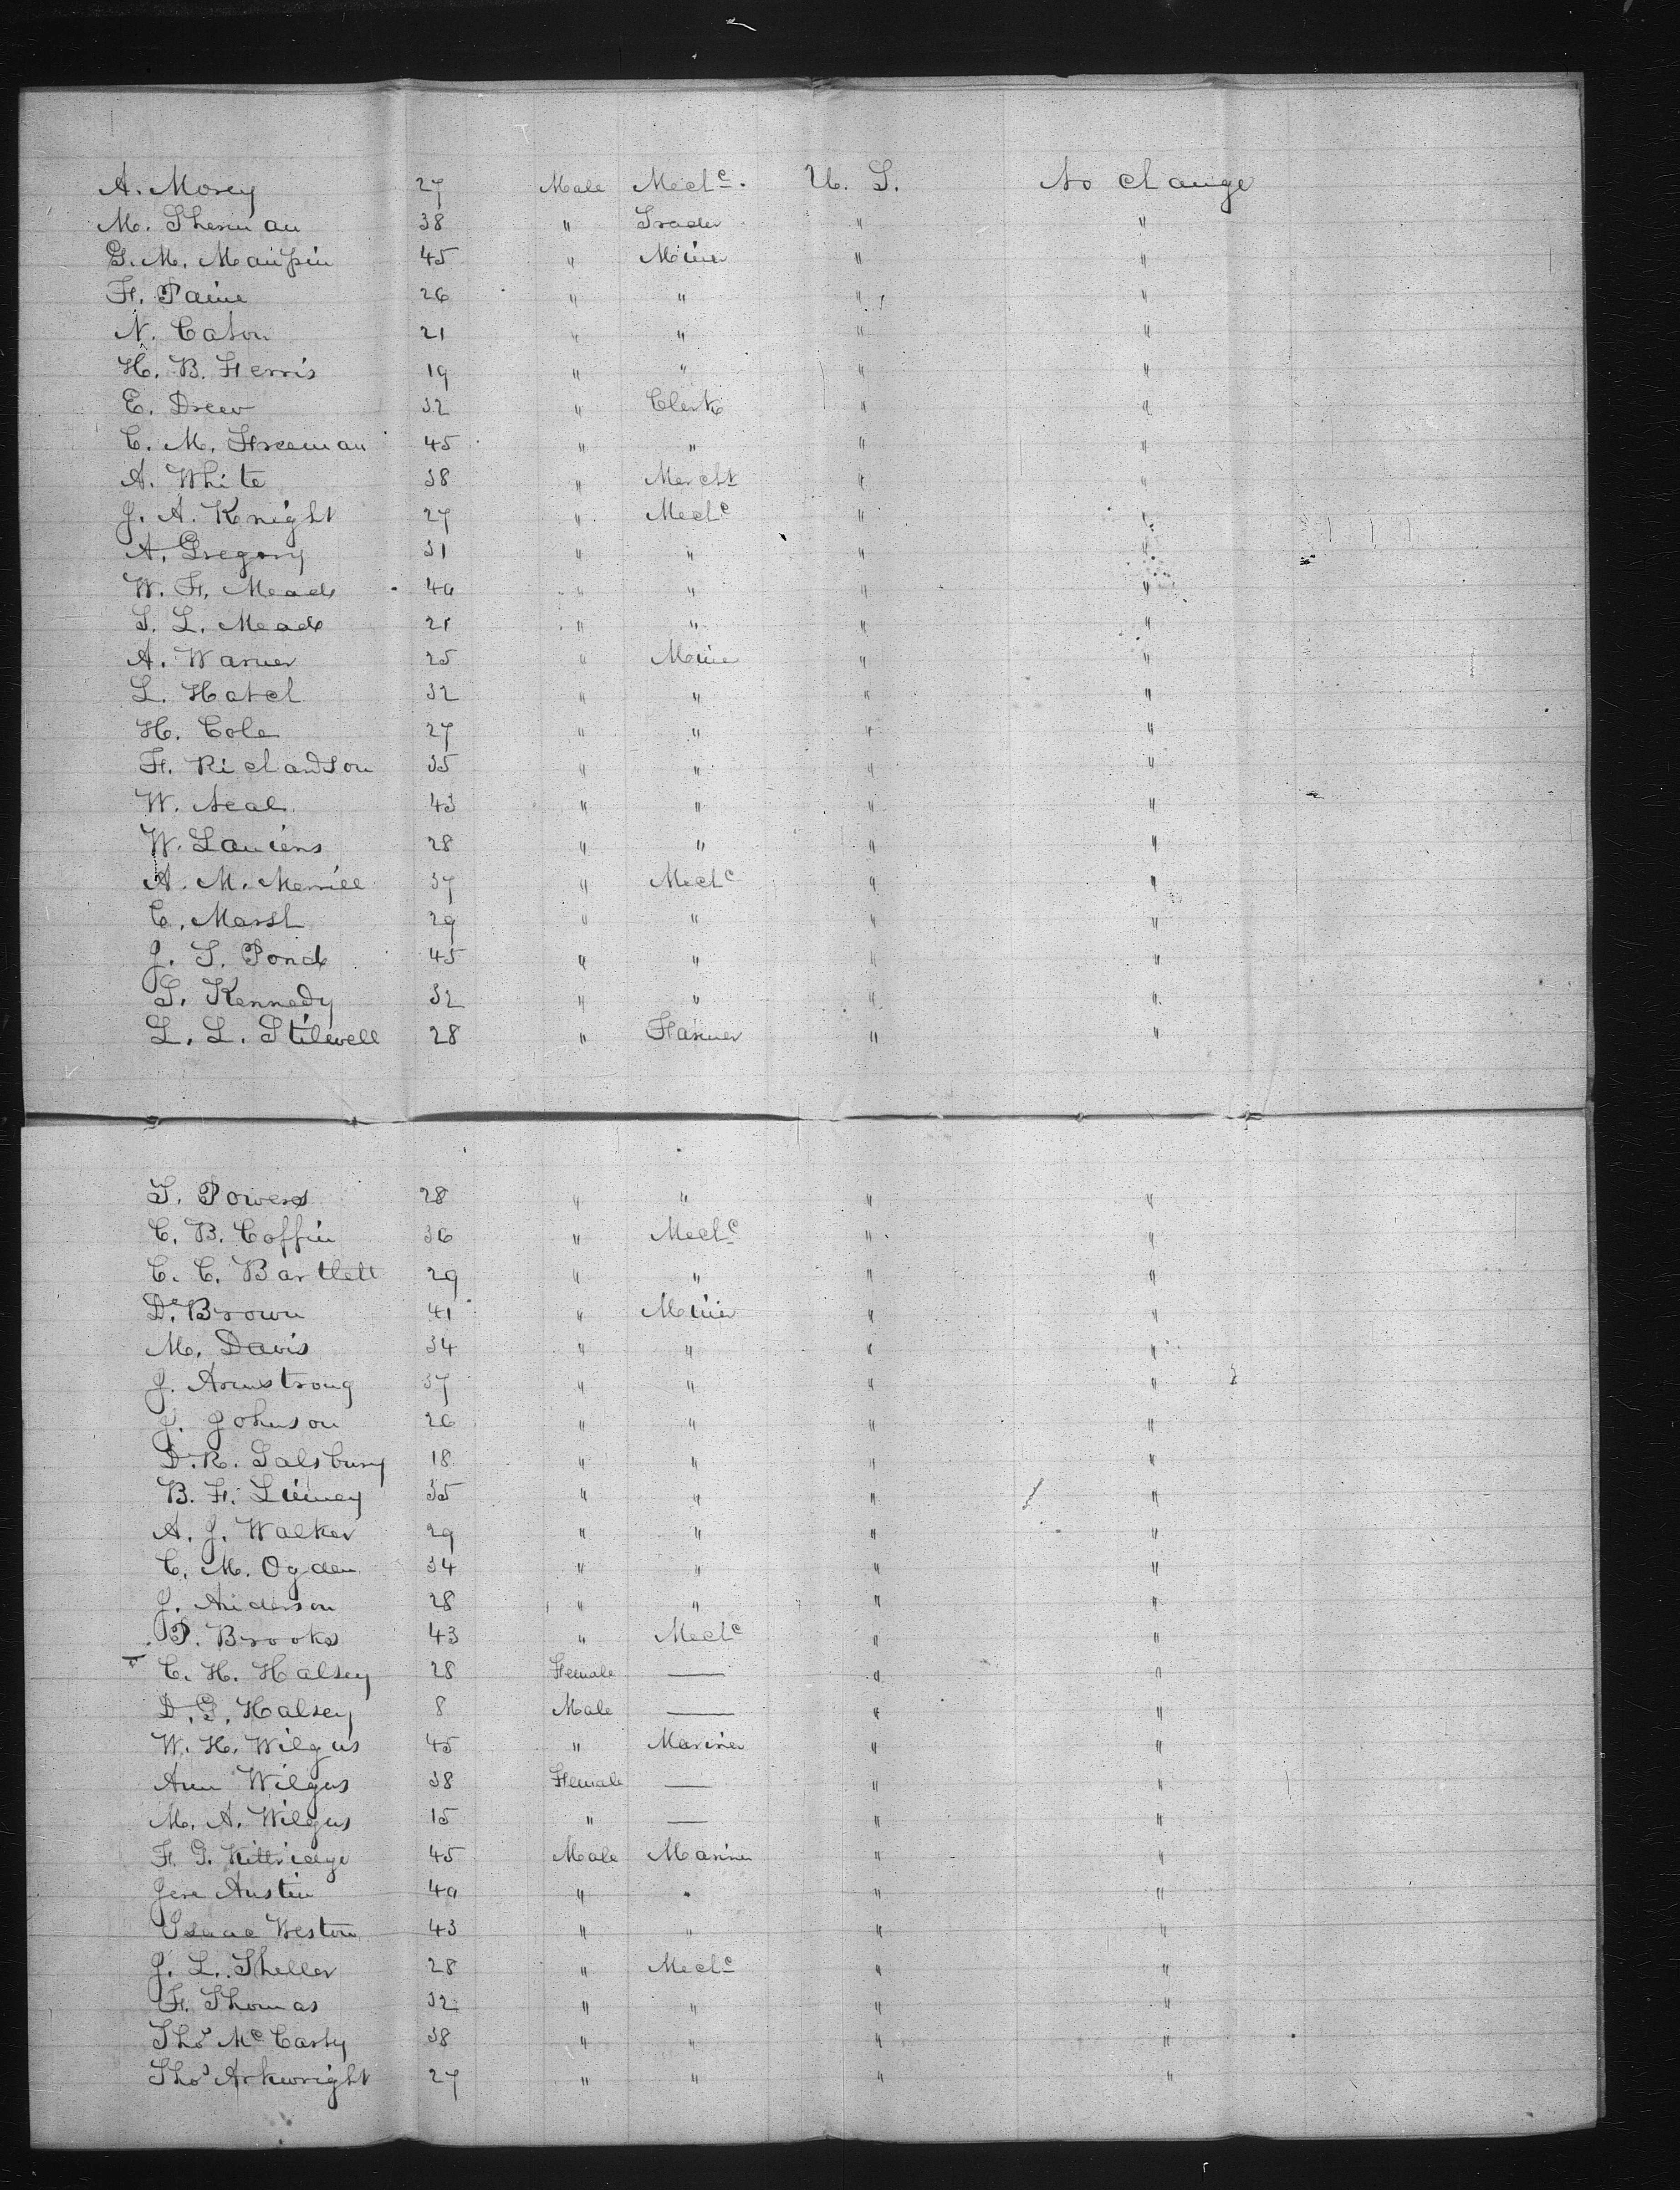 A. Mosey 27 Male Mech<sup>c</sup>. U. S. No change
M. Sherman 38 " Trader " "
G. M. Maupin 45 " Miner " "
F. Paine 26 " " " "
N. Caton 21 " " " "
H. B. Ferris 19 " " " "
E. Drew 32 " Clerk " "
C. M. Freeman 45 " " " "
A. White 38 " Mercht " "
J. A. Knight 27 " Mech<sup>c</sup> " "
A. Gregory 31 " " " "
W. F. Mead 40 " " " "
S. L. Mead 21 " " " "
A. Warner 25 " Miner " "
L. Hatch 32 " " " "
H. Cole 27 " " " "
F. Richardson 35 " " " "
W. Neal 43 " " " "
W. 28 " " " "
A. M. Merrill 37 " Mech<sup>c</sup> " "
C. Marsh 29 " " " "
J. S. Pond 45 " " " "
S. Kennedy 32 " " " "
L. L. Stilwell 28 " Farmer " "
S. Powers 28 " " " "
C. B. Coffin 36 " Mech<sup>c</sup> " "
C. C. Bartlett 29 " " " "
D. Brown 41 " Miner " "
M. Davis 34 " " " "
J. Armstrong 37 " " " "
J. Johnson 26 " " " "
D. R. Salsbury 18 " " " "
B. F. 35 " " " "
A. J. Walker 29 " " " "
C. M. Ogden 34 " " " "
J. Anderson 28 " " " "
P. Brooks 43 " Mech<sup>c</sup> " "
C. H. Halsey 28 Female — " "
D. G. Halsey 8 Male — " "
W. H. Wilgus 45 " Mariner " "
Ann Wilgus 38 Female — " "
M. A. Wilgus 15 " — " "
F. G. Kittridge 45 Male Mariner " "
Jere Austin 40 " " " "
Isaac Weston 43 " " " "
J. L. Sheller 28 " Mech<sup>c</sup> " "
F. Thomas 32 " " " "
Tho<sup>s</sup> M<sup>c</sup>Carty 38 " " " "
Tho<sup>s</sup> Arkwright 27 " " " "